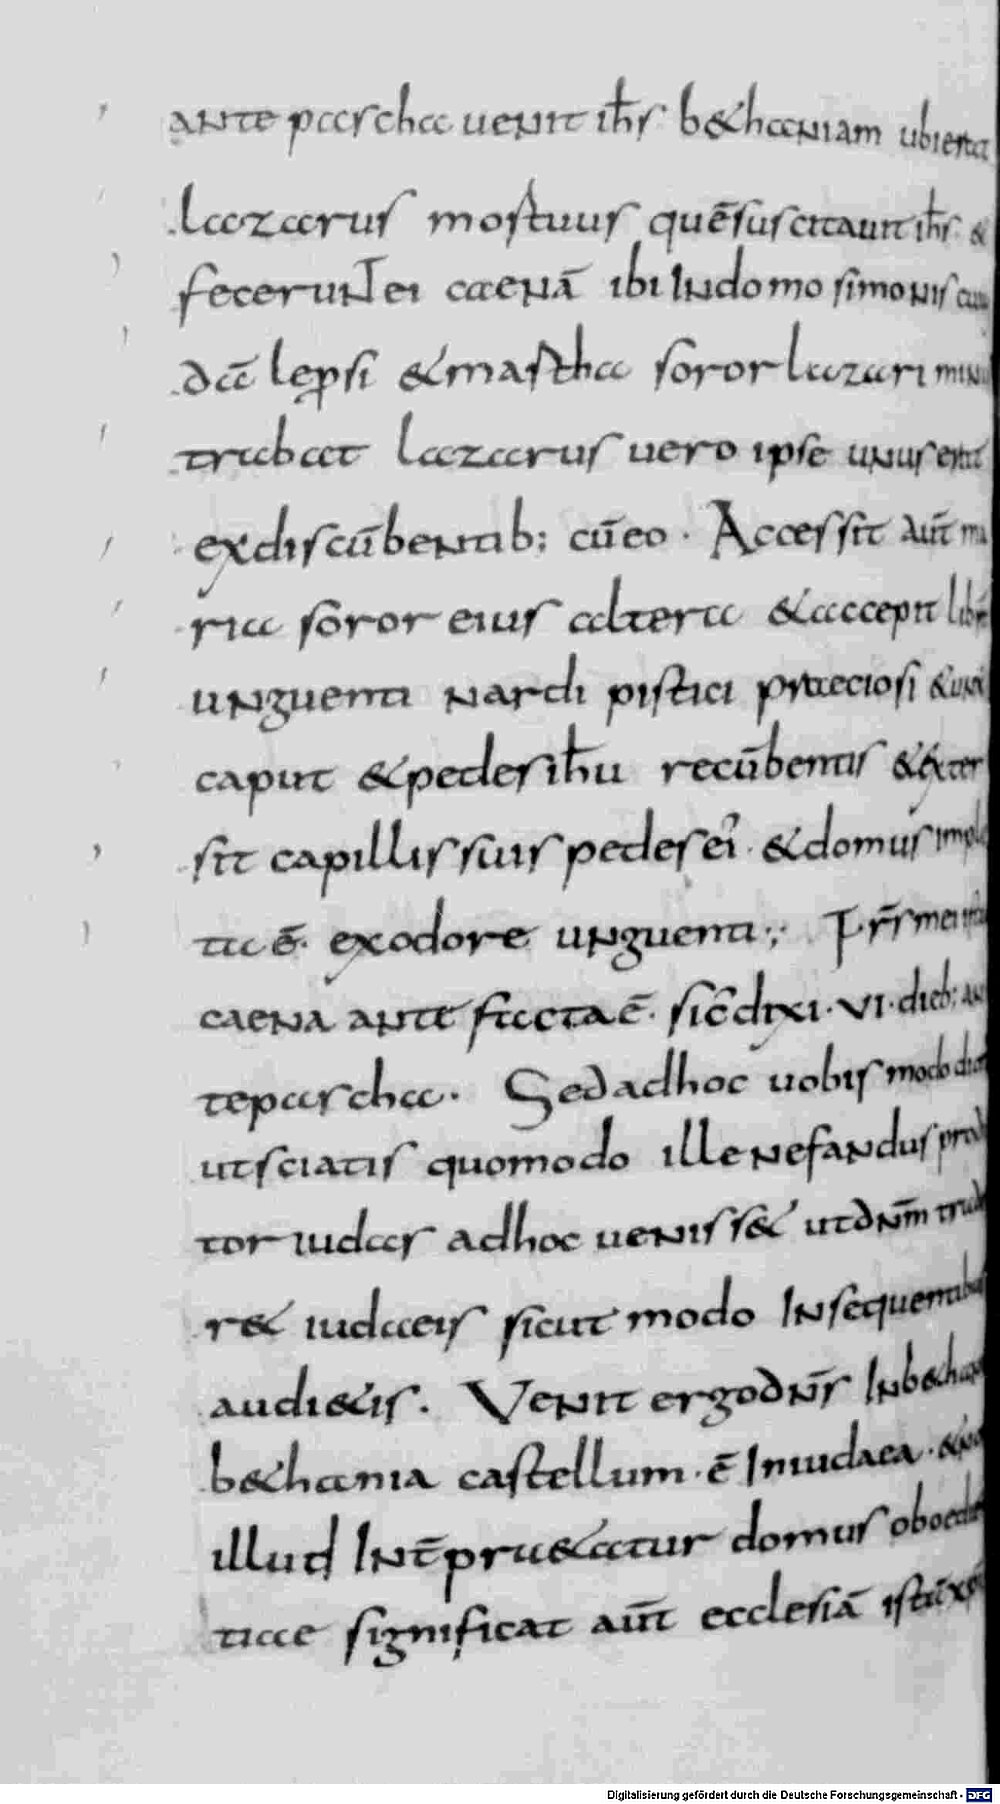 ante pascha uenit ihs bethaniam ubi erat
lazarus mortuus quē suscitauit ihs &
fecerunt ei caenā ibi in domo simonis cuius
dā leprosi & martha soror lazari minis
trabat lazarus uero ipse unus erat
ex discūbentib; cū eo · Accessit aūt ma
ria soror eius altera & accepit librā
unguenti nardi pistici praeciosi & unxit
caput & pedes ihu recūbentis & exter
sit capillis suis pedes ei · & domus imple
ta ē · ex odore unguenti ; Frs mei ista
caena ante facta ē · sic dixi · VI · dieb; an
te pascha · Sed ad hoc uobis modo dico
ut sciatis quomodo ille nefandus prodi
tor iudas ad hoc uenisset ut dnm trade
ret iudaeis sicut modo in sequentibus
audietis · Venit ergo dns in bethania
bethania castellum · ē in iudaea ·
illud intpraetatur domus oboedien
tiae significat aūt ecclesiā istā
Digitalisierung gefördert durch die Deutsche Forschungsgemeinschaft - DFG